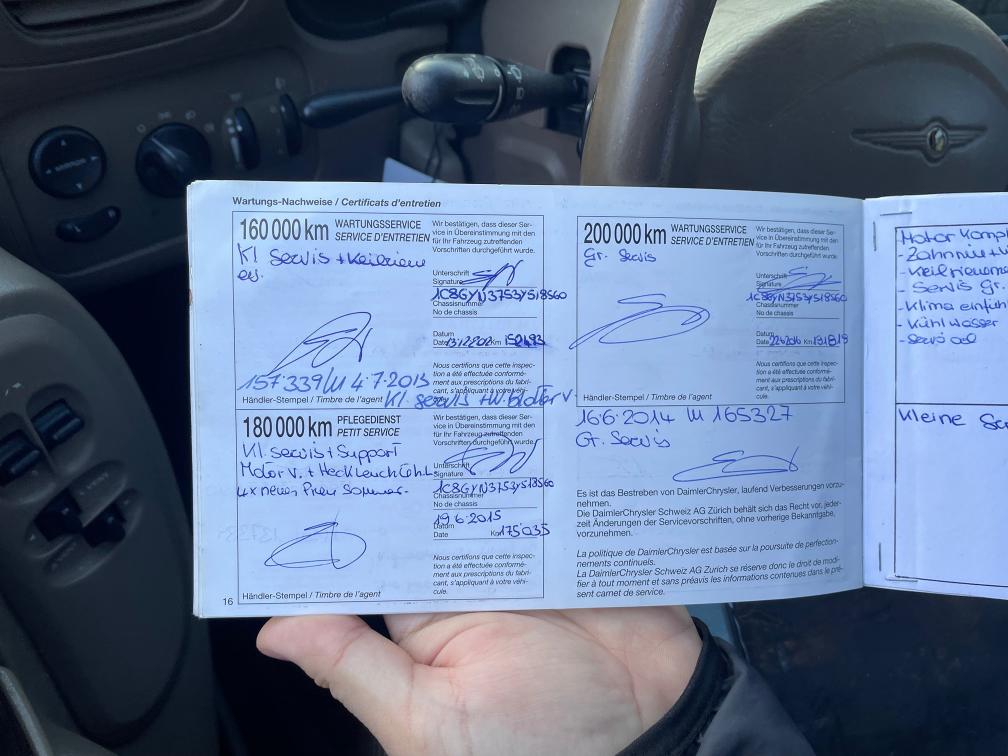 Wartungs-Nachweise / Certificats d'entretien
160 000 km WARTUNGSSERVICE
SERVICE D'ENTRETIEN
Kl Servis + Keilriem
Wir bestätigen, dass dieser Ser-
vice in Übereinstimmung mit den
für Ihr Fahrzeug zutreffenden
Vorschriften durchgeführt wurde.
Unterschrift
Signature
1C8GYN3753YS18560
Chassisnummer
No de chassis
Datum
Date Km
Nous certifions que cette inspec-
tion a été effectuée conformé-
ment aux prescriptions du fabri-
cant, s'appliquant à votre véhi-
cule.
157.339 4.7.2013
Kl. servis
Händler-Stempel / Timbre de l'agent
180 000 km PFLEGEDIENST
PETIT SERVICE
Kl servis + Support
Motor v. + Heckleucht
4x neuen Sommer.
Wir bestätigen, dass dieser Ser-
vice in Übereinstimmung mit den
für Ihr Fahrzeug zutreffenden
Vorschriften durchgeführt wurde.
Unterschrift
Signature
1C8GYN3753YS18560
Chassisnummer
No de chassis
19.6.2015
Datum
Date Km 175.035
Nous certifions que cette inspec-
tion a été effectuée conformé-
ment aux prescriptions du fabri-
cant, s'appliquant à votre véhi-
cule.
Händler-Stempel / Timbre de l'agent
16
200 000 km WARTUNGSSERVICE
SERVICE D'ENTRETIEN
Gr. Servis
Wir bestätigen, dass dieser Ser-
vice in Übereinstimmung mit den
für Ihr Fahrzeug zutreffenden
Vorschriften durchgeführt wurde.
Unterschrift
Signature
1C8GYN3753YS18560
Chassisnummer
No de chassis
Datum
Date Km
Nous certifions que cette inspec-
tion a été effectuée conformé-
ment aux prescriptions du fabri-
cant, s'appliquant à votre véhi-
cule.
Händler-Stempel / Timbre de l'agent
16.6.2014 165327
Gr. Servis
Es ist das Bestreben von DaimlerChrysler, laufend Verbesserungen vorzu-
nehmen.
Die DaimlerChrysler Schweiz AG Zürich behält sich das Recht vor, jeder-
zeit Änderungen der Servicevorschriften, ohne vorherige Bekanntgabe,
vorzunehmen.
La politique de DaimlerChrysler est basée sur la poursuite de perfection-
nements continuels.
La DaimlerChrysler Schweiz AG Zurich se réserve donc le droit de modi-
fier à tout moment et sans préavis les informations contenues dans le pré-
sent carnet de service.
Motor Kompl
- Zahnriu
- Keilrieme
- Servis Gr.
- Klima einfüh
- Kühl wasser
- Servo oel
Kleine Se